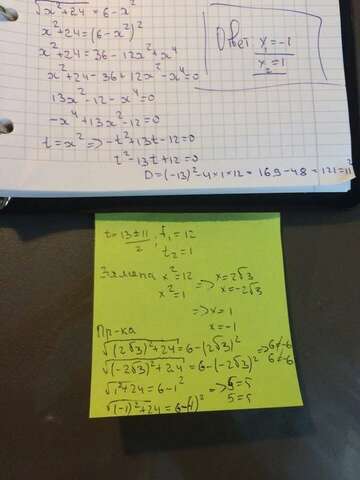 √x²+24 = 6-x²
x²+24=(6-x²)²
x²+24=36-12x²+x⁴
x²+24-36+12x²-x⁴=0
13x²-12-x⁴=0
-x⁴+13x²-12=0
t=x² => -t²+13t-12=0
t²-13t+12=0
D=(-13)²-4×1×12=169-48=121=11²
Ответ: x=-1
x₂=1
t=13±11/2; t₁=12
t₂=1
Замена x²=12 => x=2√3
x=-2√3
x²=1
=> x=1
x=-1
Пр-ка
√(2√3)²+24=6-(2√3)² => 6≠-6
√(-2√3)²+24=6-(-2√3)² 6≠-6
√1²+24=6-1² => 5=5
√(-1)²+24=6-(-1)² 5=5